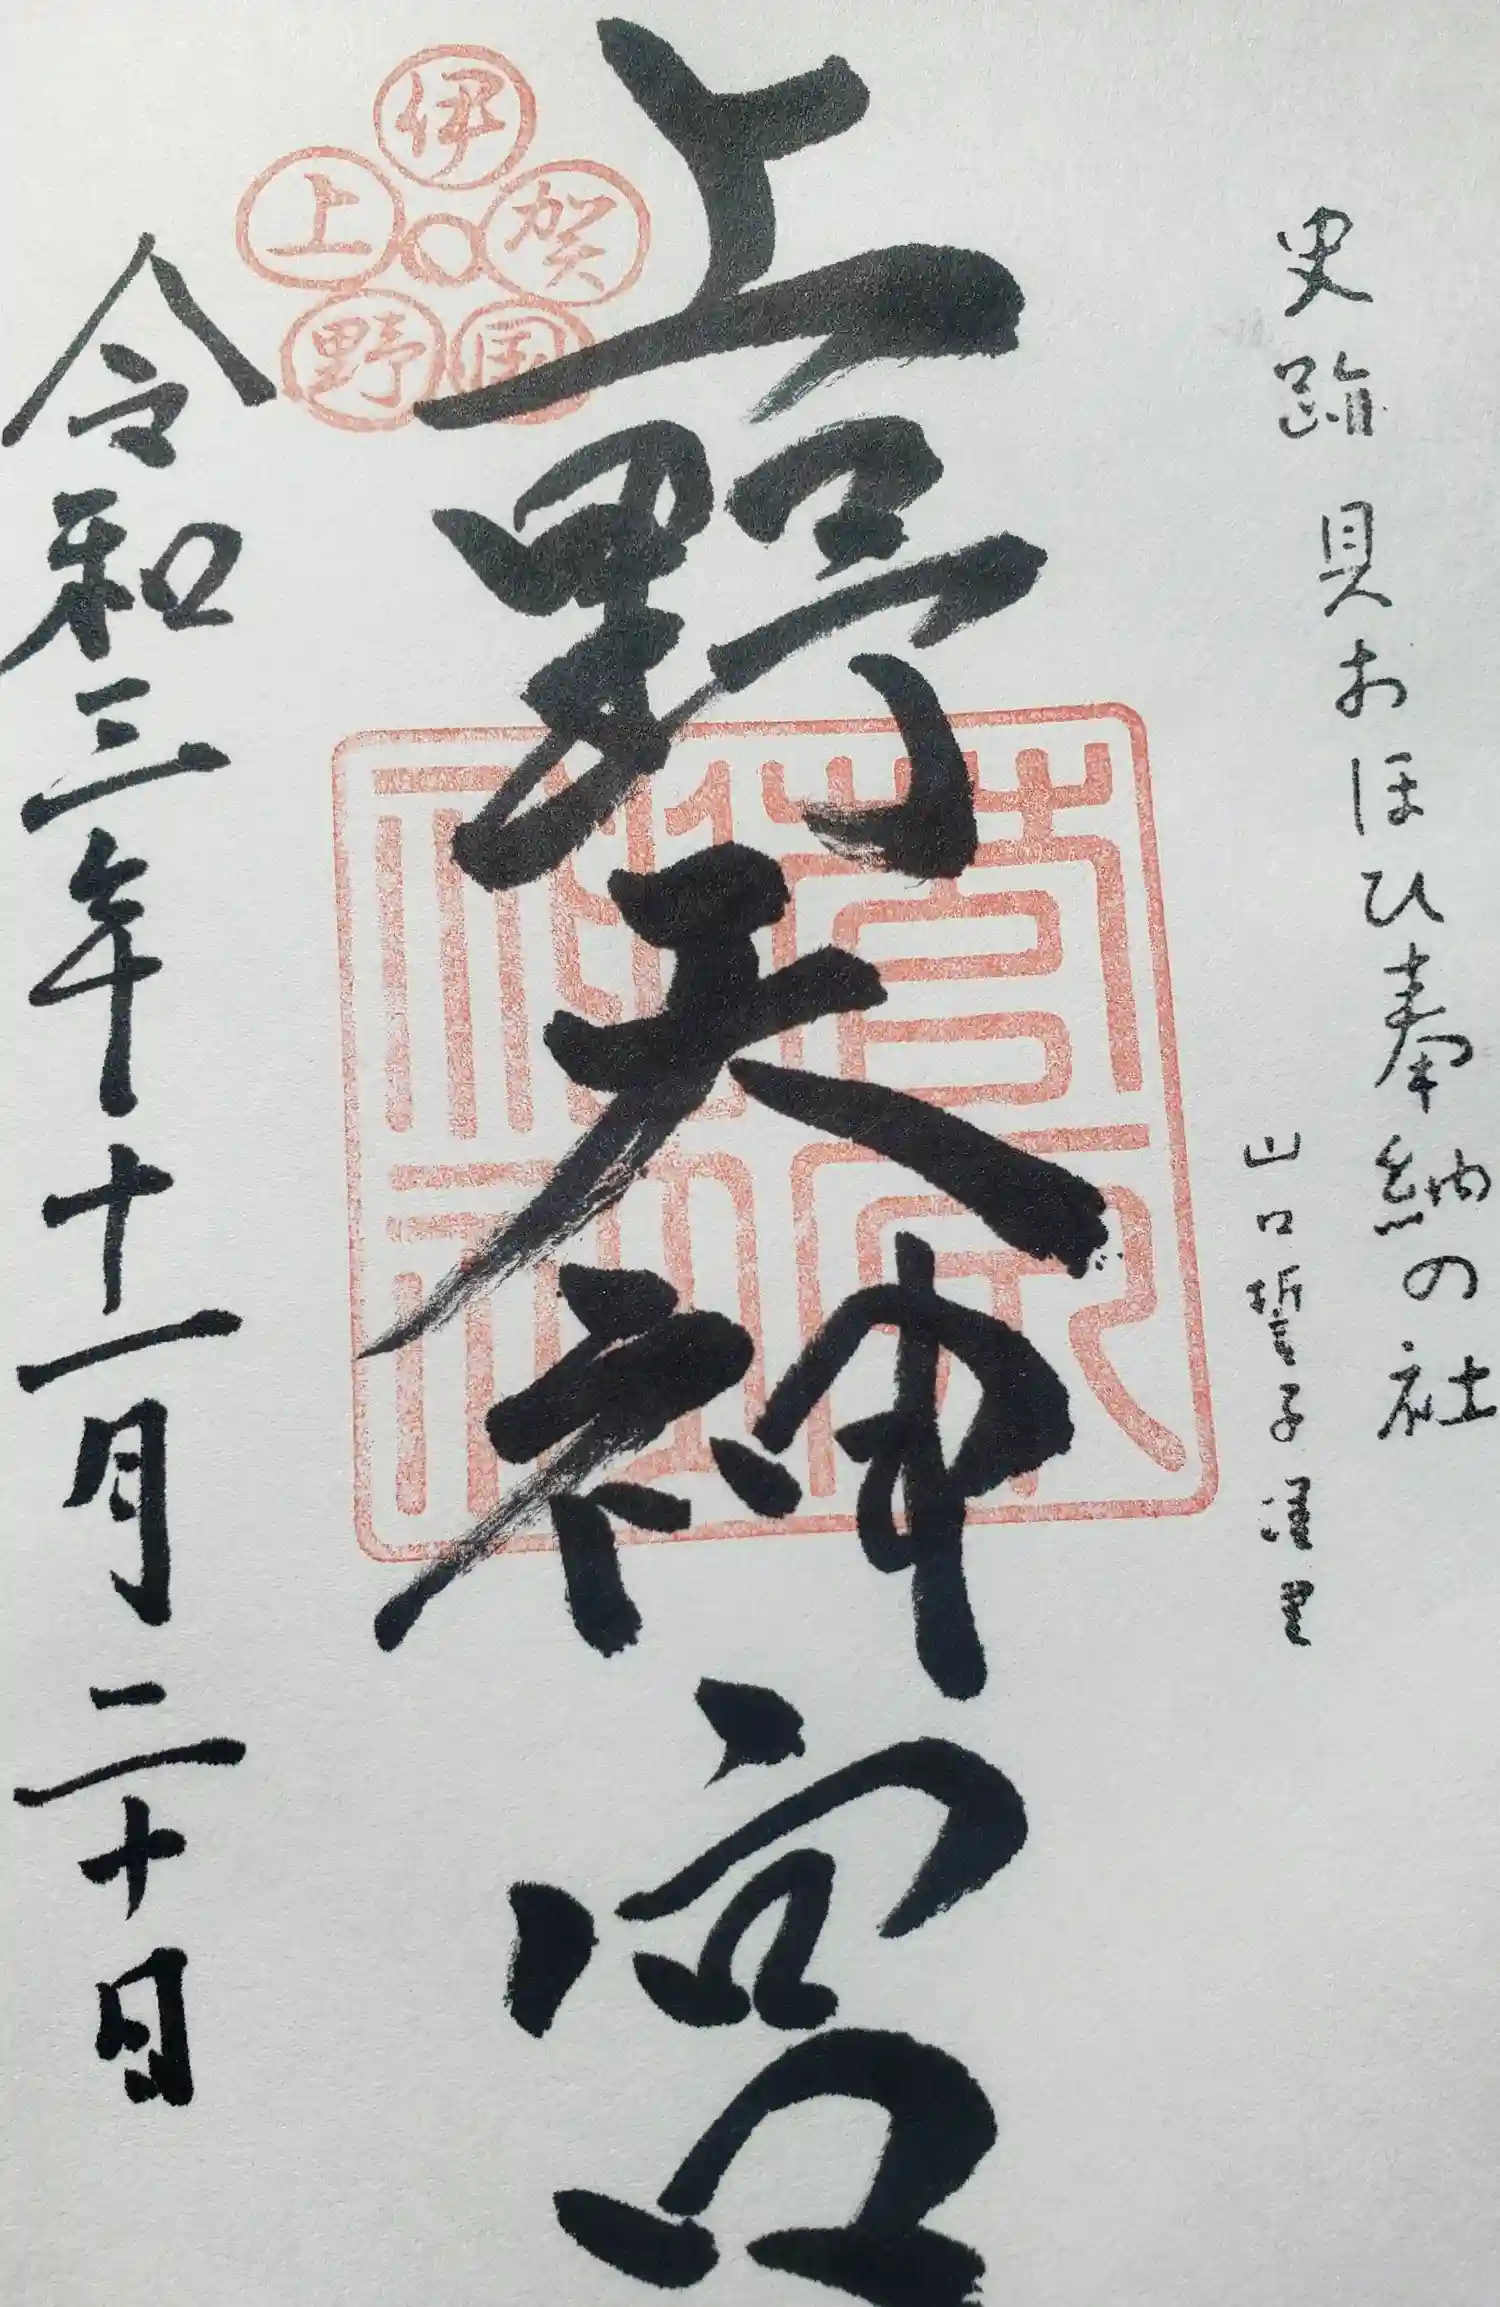 史跡 貝おほひ奉納の社
山口誓子
上野天神宮
伊賀国上野
菅原神社
令和三年十一月二十日